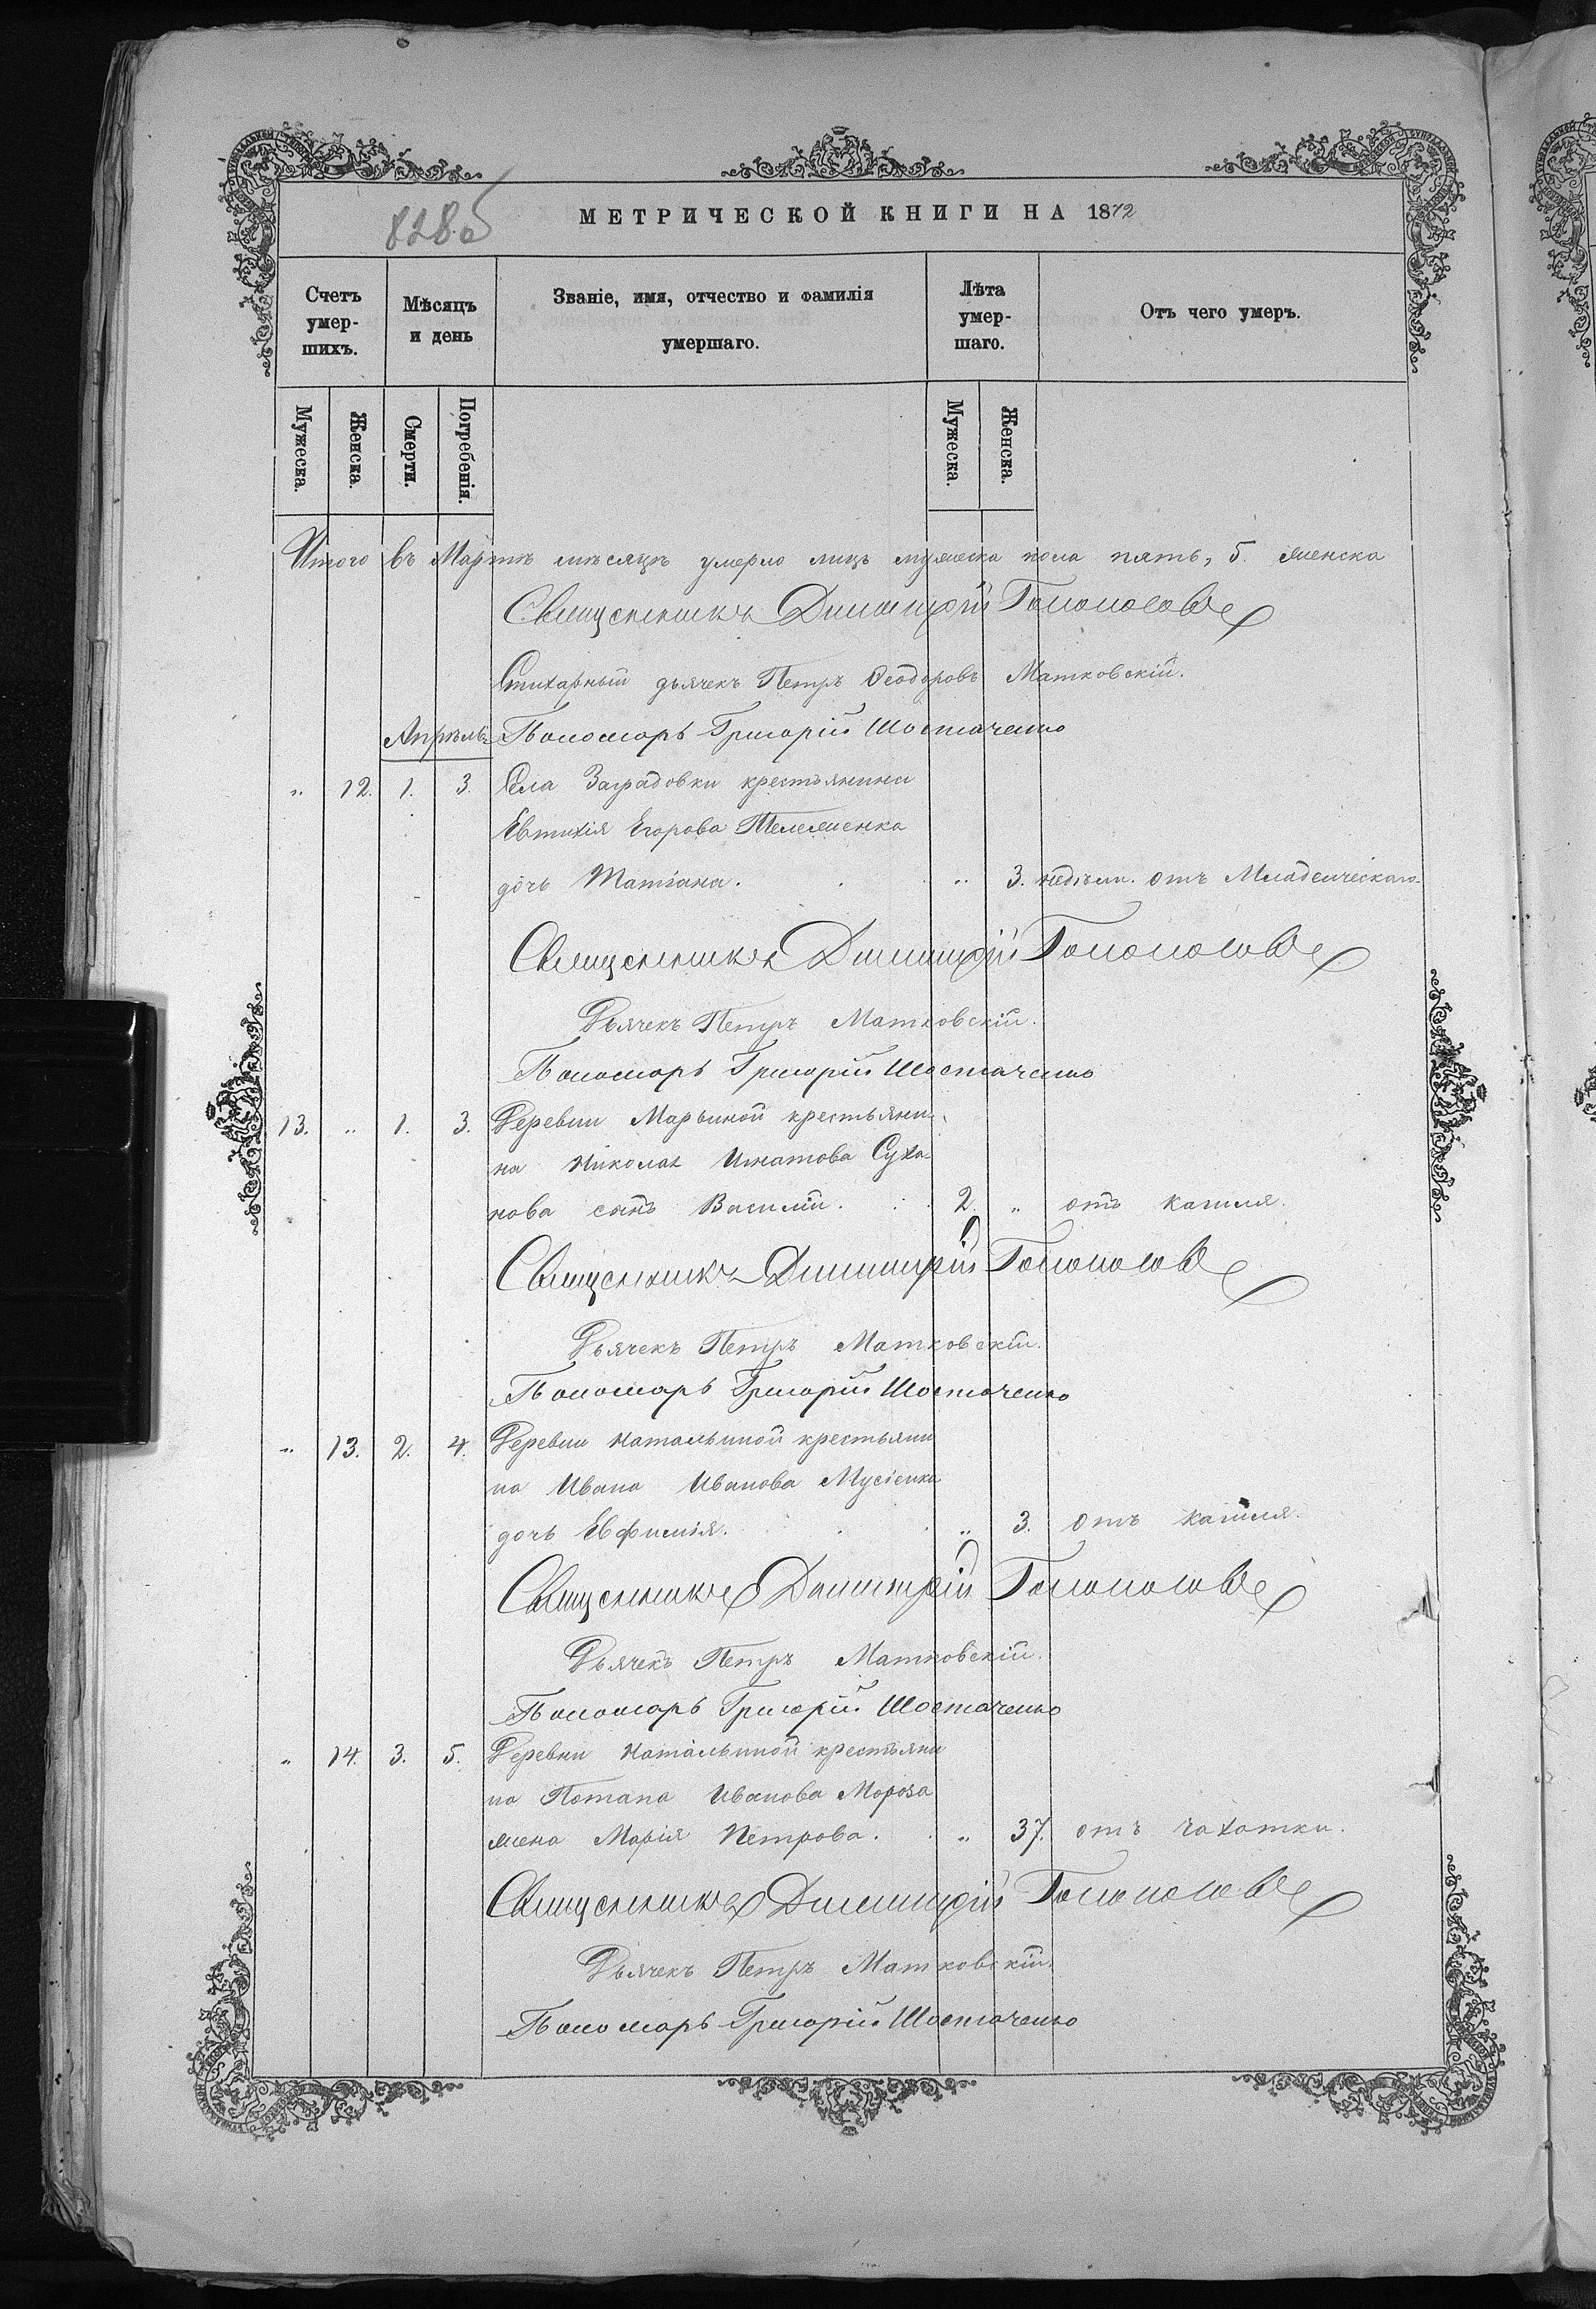 828об
МЕТРИЧЕСКОЙ КНИГИ НА 1872
Счетъ умер-шихъ.
Мѣсяцъ и день
Званіе, имя, отчество и фамилія умершаго.
Лѣта умер-шаго.
Отъ чего умеръ.
Мужеска.
Женска.
Смерти.
Погребенія.
Мужеска.
Женска.
Итого въ Мартѣ мѣсяцѣ умерло лицъ мужеска пола пять, 5. женска
Священникъ Димитрій
Стихарный дьячекъ Петръ Ѳеодоровъ Матковскій.
Апрѣль Пономарь Григорій Шостаченко
" 12. 1. 3. Села Заградовки крестьянина
Евтихія Егорова Тележенка
дочь Татіана. " 3. недѣли. отъ Младенческаго
Священникъ Димитрій
Дьячекъ Петръ Матковскій.
Пономарь Григорій Шостаченко
13. " 1. 3. Деревни Марьиной крестьяни-
на Николая Игнатова Суха-
нова сынъ Василій. 2. " отъ кашля.
Священникъ Димитрій
Дьячекъ Петръ Матковскій.
Пономарь Григорій Шостаченко
" 13. 2. 4. Деревни Натальиной крестьяни
на Ивана Иванова Мусіенка
дочь Евфимія. " 3. отъ кашля.
Священникъ Димитрій
Дьячекъ Петръ Матковскій.
Пономарь Григорій Шостаченко
" 14. 3. 5. Деревни Натальиной крестьяни
на Потапа Иванова Мороза
жена Марія Петрова. " 37. отъ чахотки.
Священникъ Димитрій
Дьячекъ Петръ Матковскій.
Пономарь Григорій Шостаченко